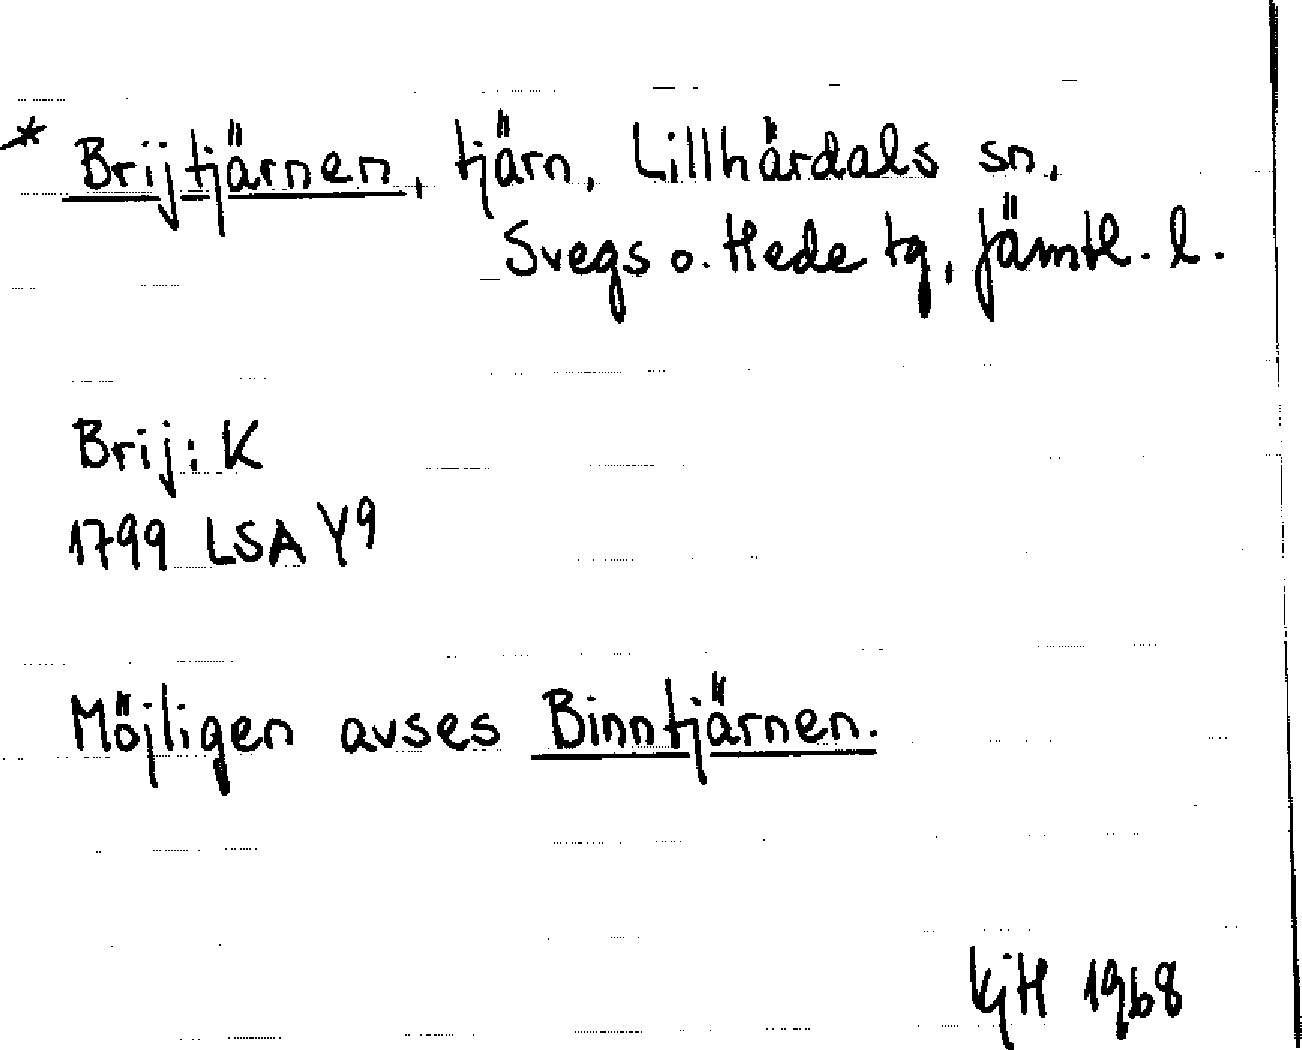 * Brijtjärnen, tjärn, Lillhärdals sn,
Svegs o. Hede tg, Jämtl. l.
Brij: K
1799 LSA Y9
Möjligen avses Binntjärnen.
KjH 1968